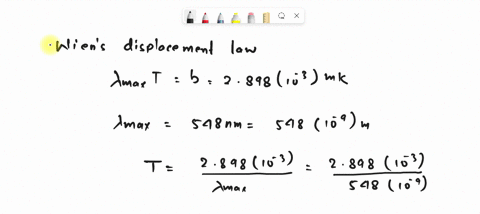 Wien's displacement law
λmax T = b = 2.898 (10⁻³) mK
λmax = 548 nm = 548 (10⁻⁹) m
T = 2.898 (10⁻³) / λmax = 2.898 (10⁻³) / 548 (10⁻⁹)